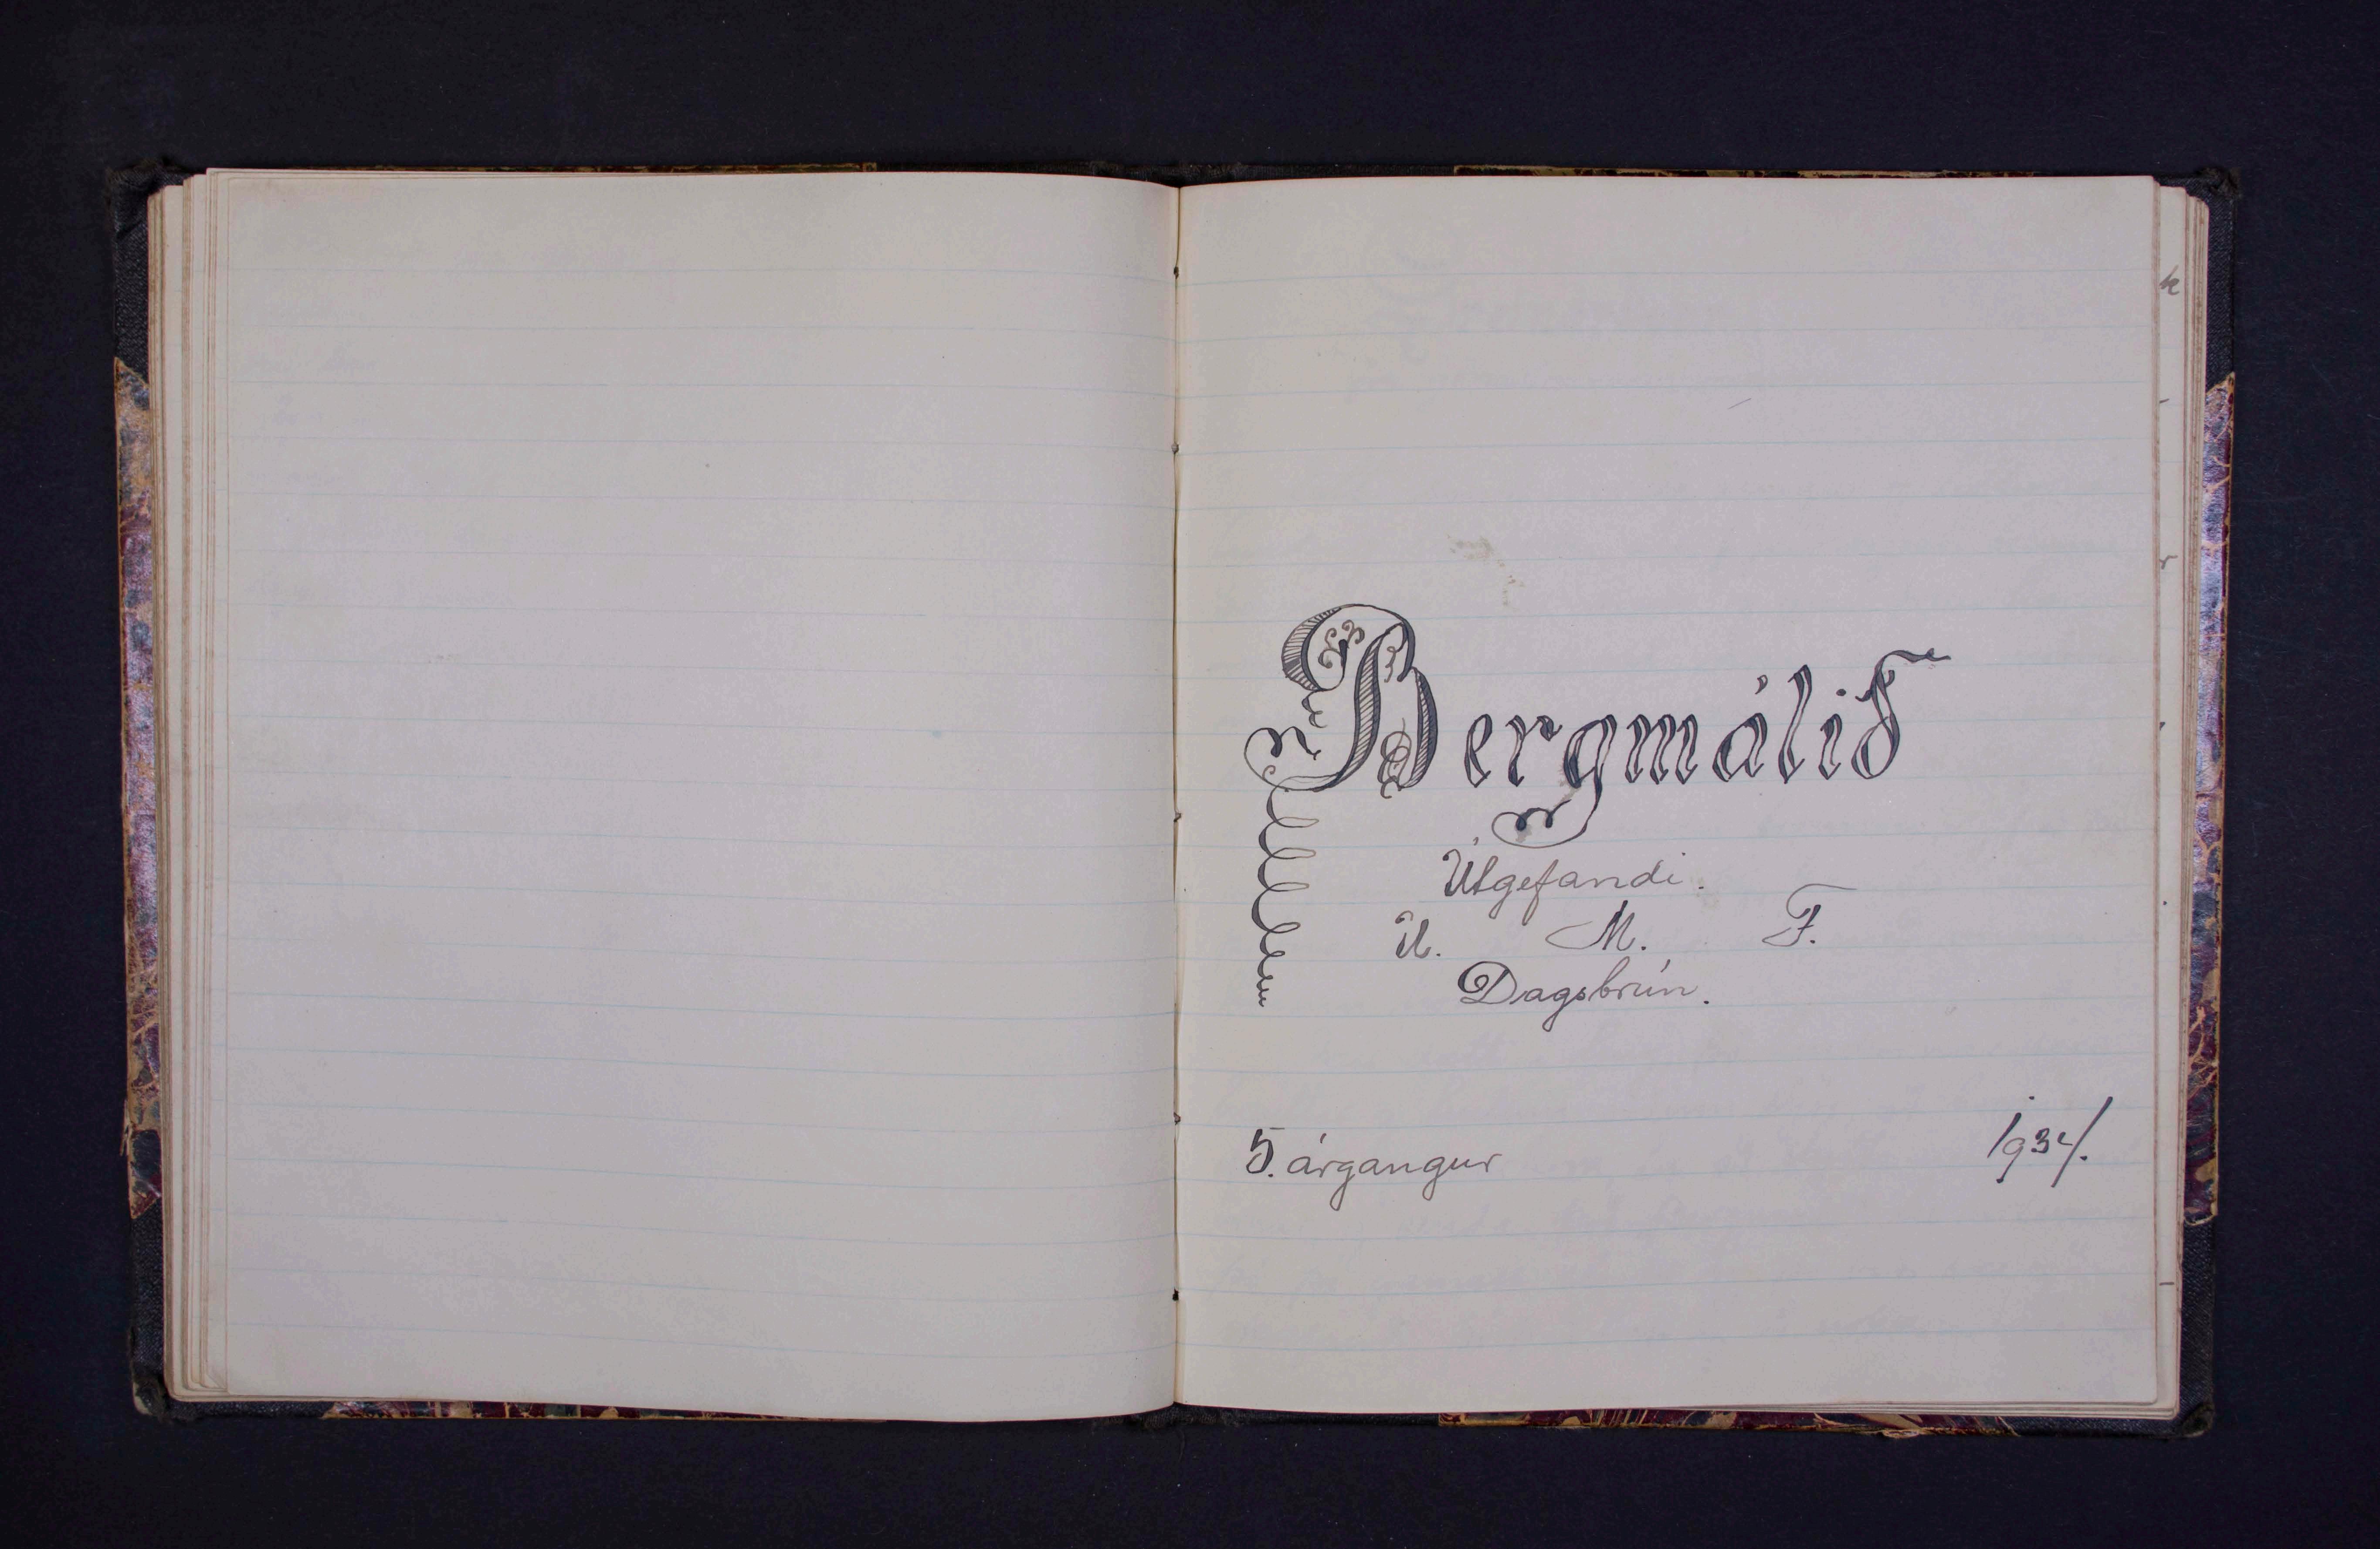 Bergmálið
Útgefandi.
U. M. F.
Dagsbrún.
5. árgangur 1934.